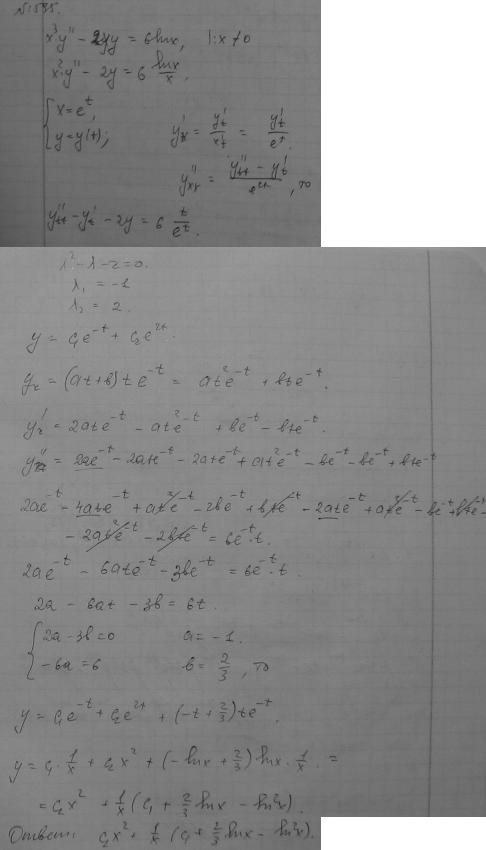 x³y'' - 2xy = 6lnx, |:x ≠ 0
x²y'' - 2y = 6 lnx/x,
{ x = e^t,
y = y(t); y'ₓ = y'ₜ/x'ₜ = y'ₜ/e^t.
y''ₓₓ = (y''ₜₜ - y'ₜ)/e^2t, то
y''ₜₜ - y'ₜ - 2y = 6 t/e^t.
λ² - λ - 2 = 0.
λ₁ = -1
λ₂ = 2.
y = c₁e^-t + c₂e^2t.
yᵣ = (at+b)te^-t = at²e^-t + bte^-t.
yᵣ' = 2ate^-t - at²e^-t + be^-t - bte^-t.
yᵣ'' = 2ae^-t - 2ate^-t - 2ate^-t + at²e^-t - be^-t - be^-t + bte^-t
2ae^-t - 4ate^-t + at²e^-t - 2be^-t + bte^-t - 2ate^-t + at²e^-t - be^-t + bte^-t -
- 2at²e^-t - 2bte^-t = 6e^-t·t.
2ae^-t - 6ate^-t - 3be^-t = 6e^-t·t.
2a - 6at - 3b = 6t.
{ 2a - 3b = 0 a = -1.
-6a = 6 b = 2/3, то
y = c₁e^-t + c₂e^2t + (-t + 2/3)te^-t.
y = c₁·1/x + c₂x² + (-lnx + 2/3)lnx·1/x. =
= c₂x² + 1/x(c₁ + 2/3 lnx - ln²x).
Ответ: c₂x² + 1/x (c₁ + 2/3 lnx - ln²x).